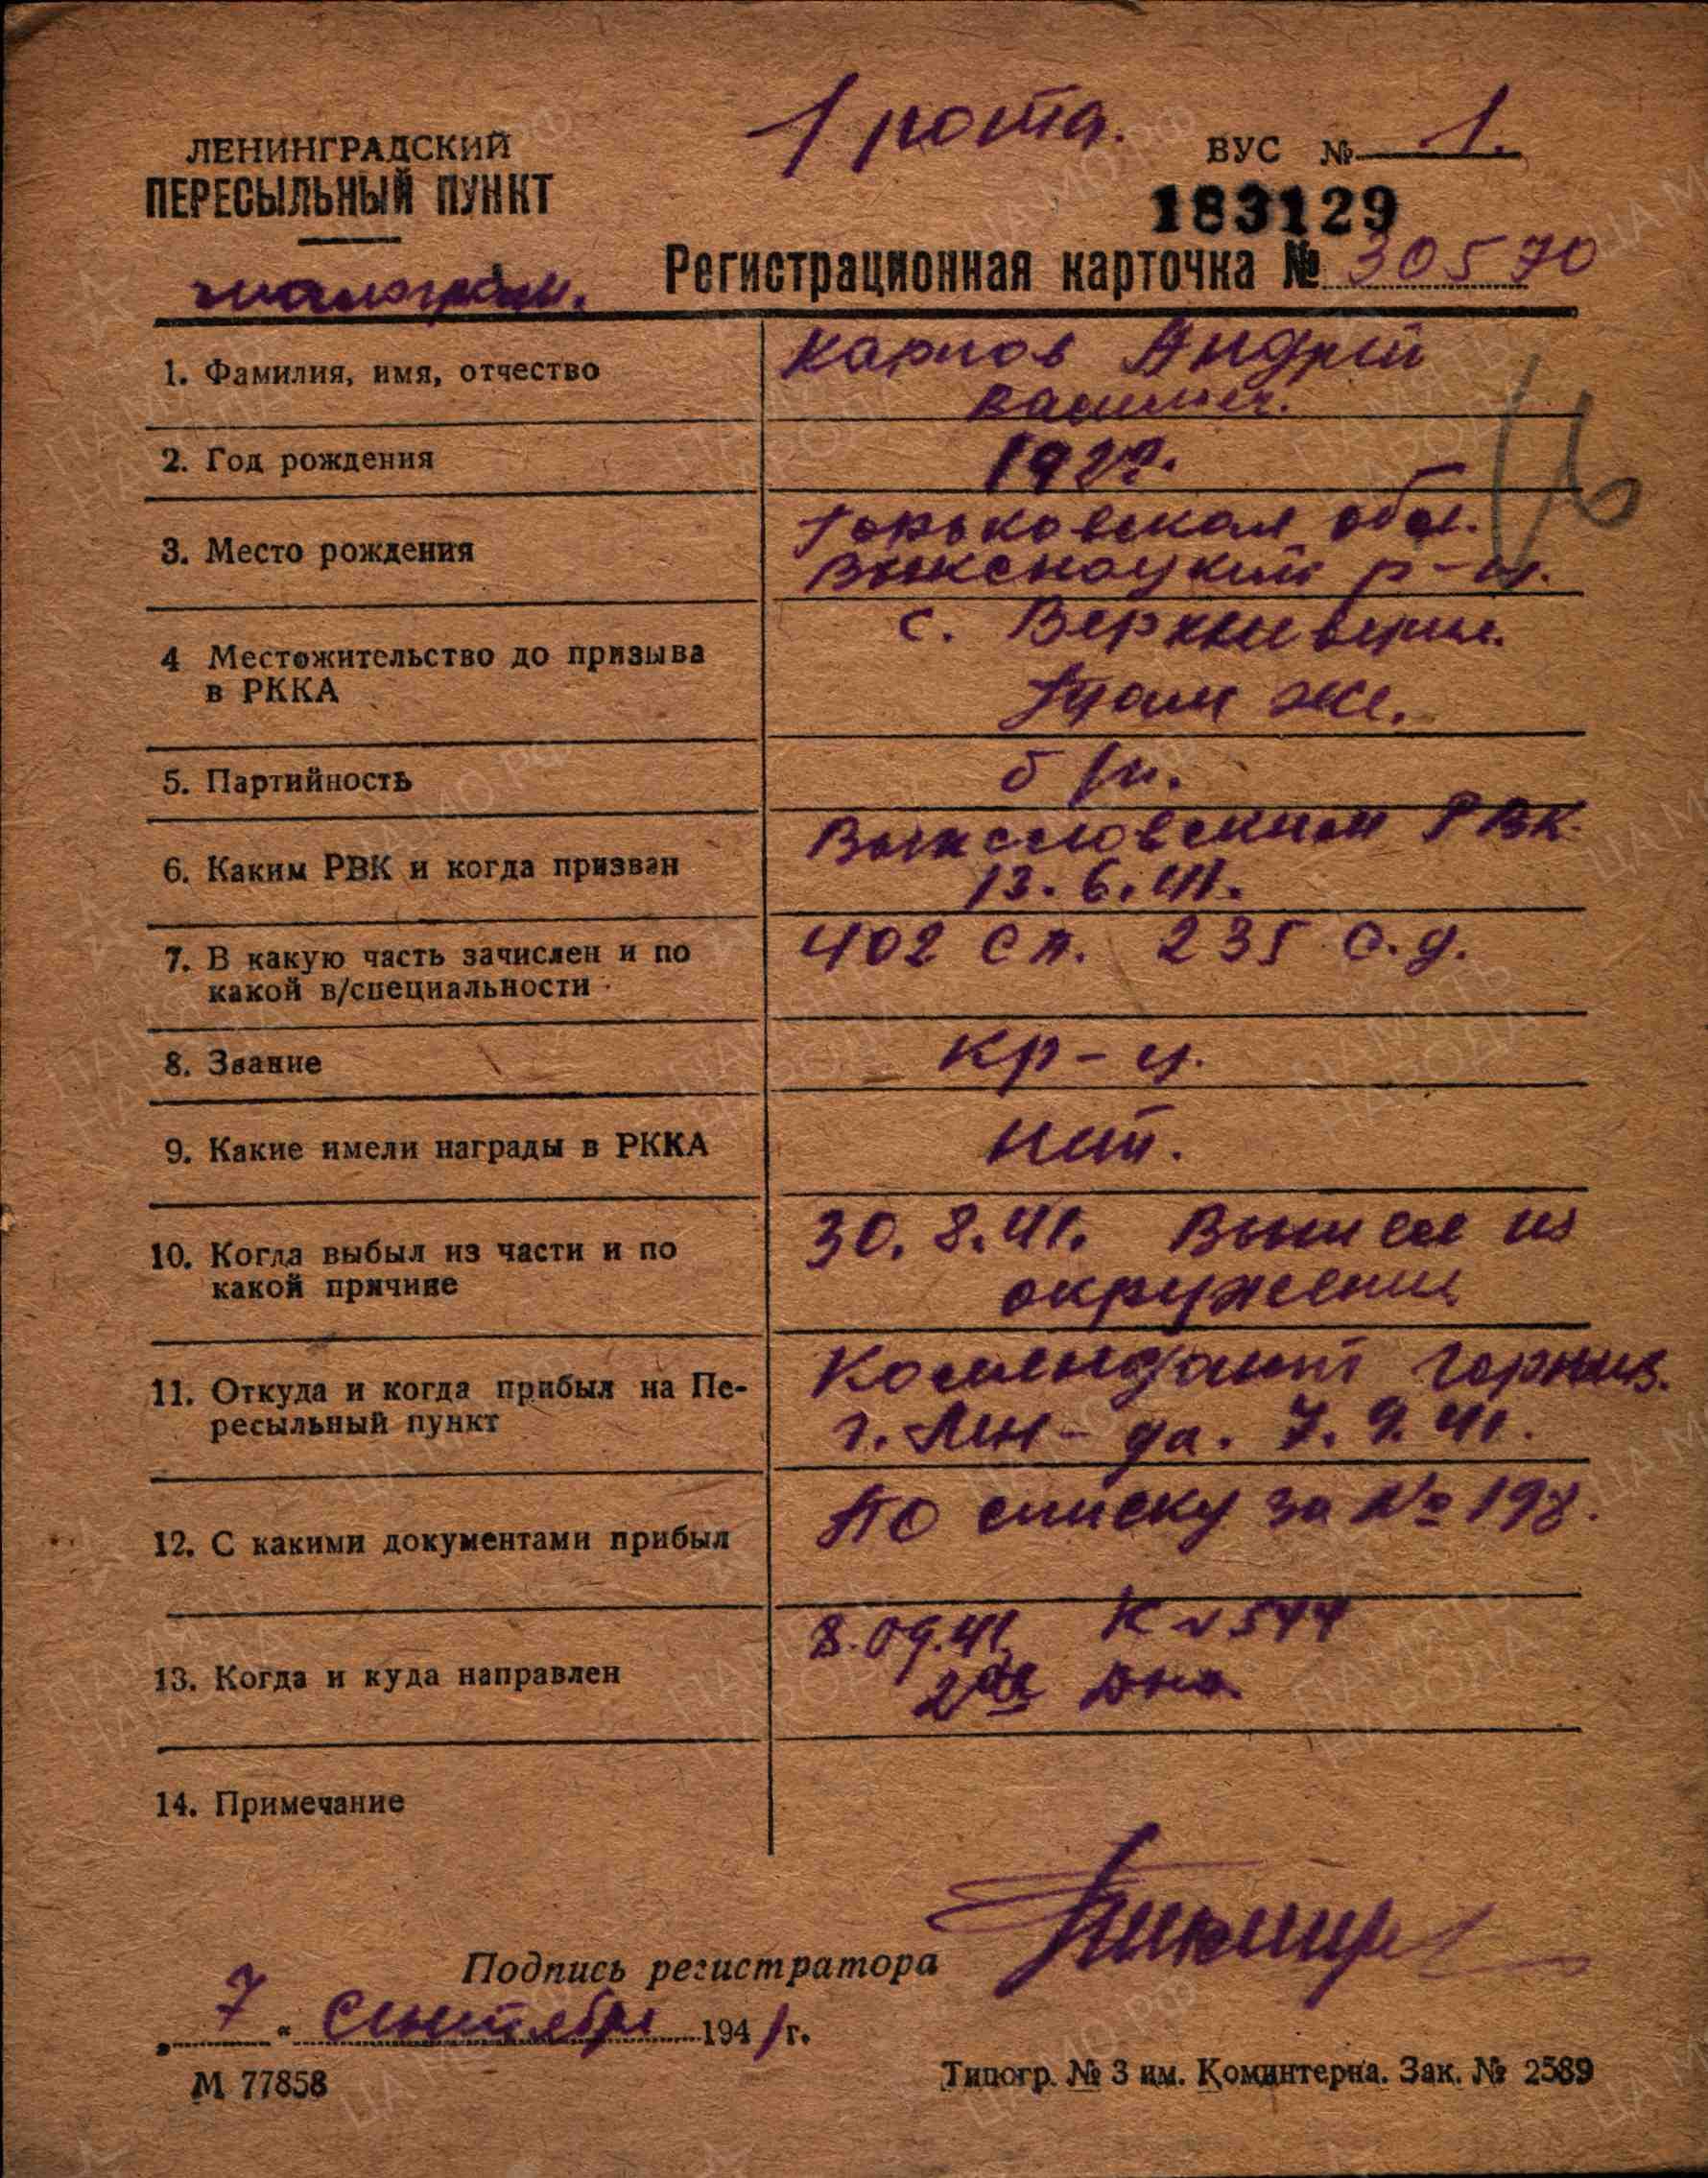 1 рота.
ВУС № 1.
ЛЕНИНГРАДСКИЙ
ПЕРЕСЫЛЬНЫЙ ПУНКТ
183129
Регистрационная карточка № 30570
малограм.
1. Фамилия, имя, отчество
Карпов Андрей
Васильев.
2. Год рождения
1922.
3. Место рождения
Горьковская обл.
р-н.
с. Верхне
4 Местожительство до призыва
в РККА
Там же.
5. Партийность
б/п.
6. Каким РВК и когда призван
РВК.
13.6.41.
7. В какую часть зачислен и по
какой в/специальности
402 сп. 235 с.д.
8. Звание
кр-ц.
9. Какие имели награды в РККА
нет.
10. Когда выбыл из части и по
какой причине
30.8.41. Вышел из
окружения
11. Откуда и когда прибыл на Пе-
ресыльный пункт
Комендант гарниз.
г. Лен-да. 7.9.41.
12. С какими документами прибыл
По списку за № 198.
13. Когда и куда направлен
8.09.41. К № 544
2ая Дно.
14. Примечание
Подпись регистратора
„ 7 “ Сентября 1941 г.
М 77858
Типогр. № 3 им. Коминтерна. Зак. № 2589